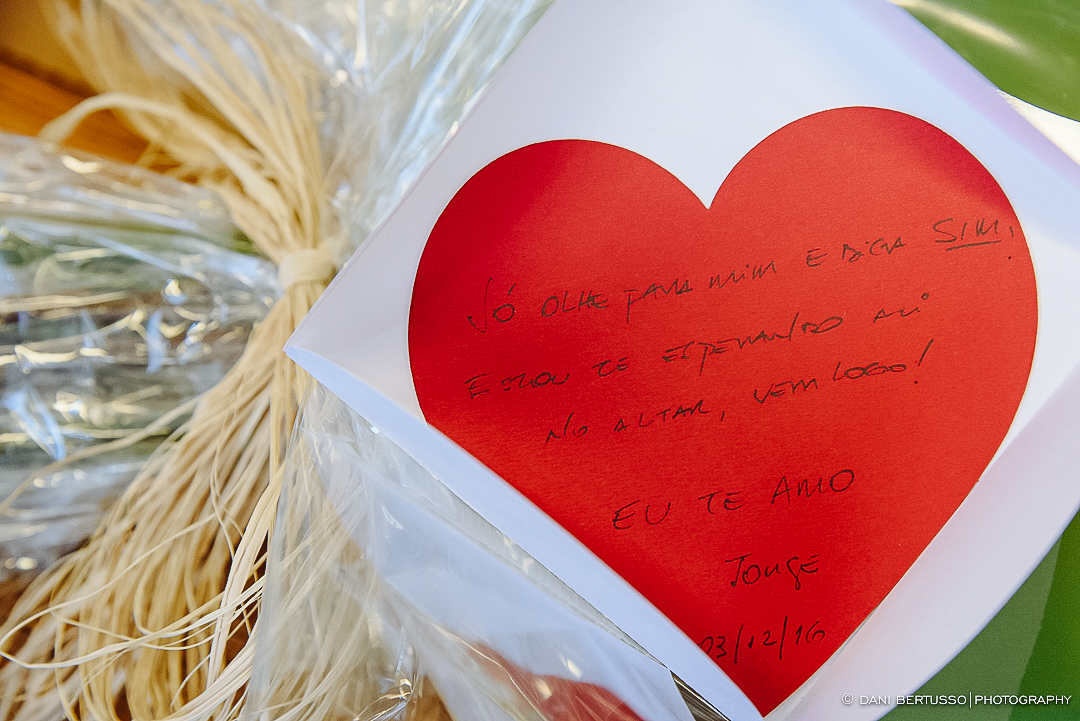 Só OLHE para mim E DIGA SIM,
ESTOU TE ESPERANDO ALI
NO ALTAR, VEM LOGO!
EU TE AMO
Jorge
03/12/16
© DANI BERTUSSO|PHOTOGRAPHY